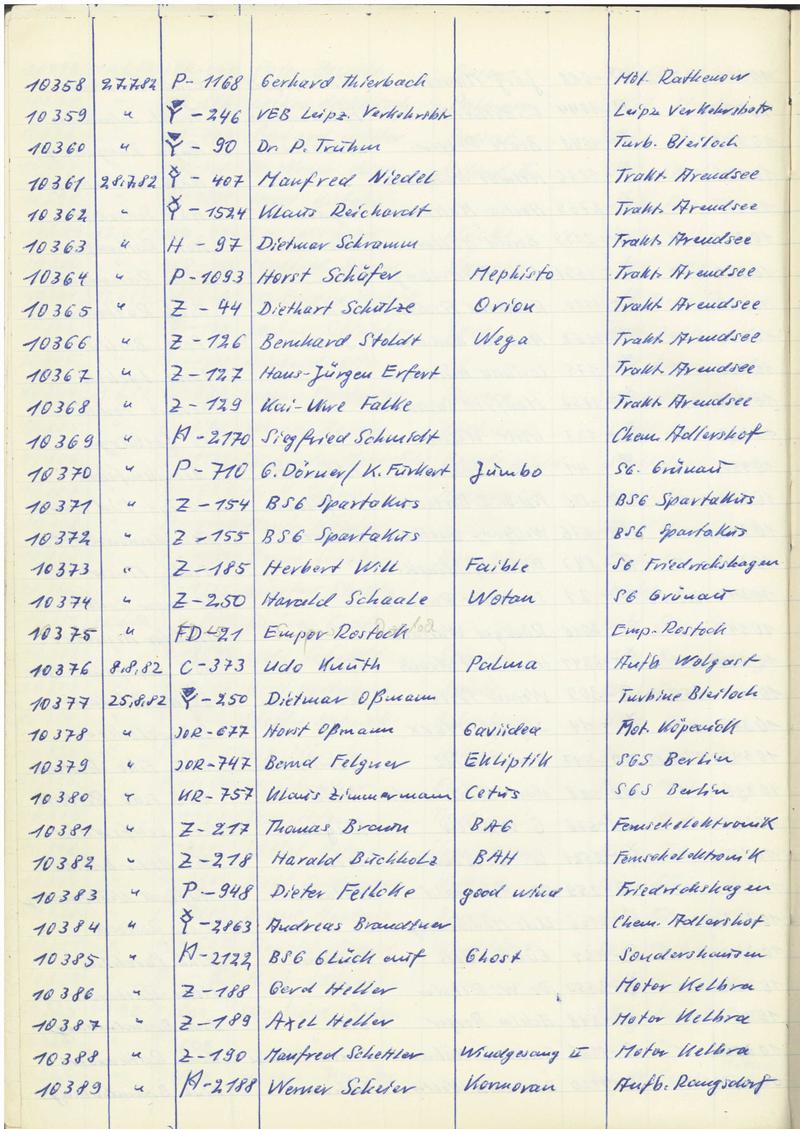 10358 27.7.82 P-1168 Gerhard Thierbach Mot. Rathenow
10359 " -246 VEB Leipz. Verkehrsbtr Leipz Verkehrsbetr
10360 " -90 Dr. P. Truhm Turb. Bleiloch
10361 28.7.82 -407 Manfred Niedel Trakt. Arendsee
10362 " -1524 Klaus Reichardt Trakt. Arendsee
10363 " H-97 Dietmar Schramm Trakt. Arendsee
10364 " P-1093 Horst Schäfer Mephisto Trakt. Arendsee
10365 " Z-44 Diethart Schulze Orion Trakt. Arendsee
10366 " Z-126 Bernhard Stoldt Wega Trakt. Arendsee
10367 " Z-127 Hans-Jürgen Erfert Trakt. Arendsee
10368 " Z-129 Kai-Uwe Falke Trakt. Arendsee
10369 " -2170 Siegfried Schmidt Chem. Adlershof
10370 " P-710 G. Dörner/ K. Furkert Jumbo SG. Grünau
10371 " Z-154 BSG Spartakus BSG Spartakus
10372 " Z-155 BSG Spartakus BSG Spartakus
10373 " Z-185 Herbert Will Faible SG Friedrichshagen
10374 " Z-250 Harald Schaale Wotan SG Grünau
10375 " FD-21 Empor Rostock Emp.-Rostock
10376 8.8.82 C-373 Udo Knuth Palma Aufb Wolgast
10377 25.8.82 -250 Dietmar Oßmann Turbine Bleiloch
10378 " JOR-677 Horst Oßmann Gaviidea Mot. Köpenick
10379 " JOR-747 Bernd Felgner Ekliptik SGS Berlin
10380 " KR-757 Klaus Zimmermann Cetus SGS Berlin
10381 " Z-217 Thomas Braun BAG Fernsehelektronik
10382 " Z-218 Harald Buchholz BAH Fernsehelektronik
10383 " P-948 Dieter good wind Friedrichshagen
10384 " -2863 Andreas Brandtner Chem. Adlershof
10385 " -2122 BSG Glück auf Ghost Sondershausen
10386 " Z-188 Gerd Heller Motor Kelbra
10387 " Z-189 Axel Heller Motor Kelbra
10388 " Z-190 Manfred Schettler Windgesang II Motor Kelbra
10389 " -2188 Werner Scheler Kormoran Aufb. Rangsdorf